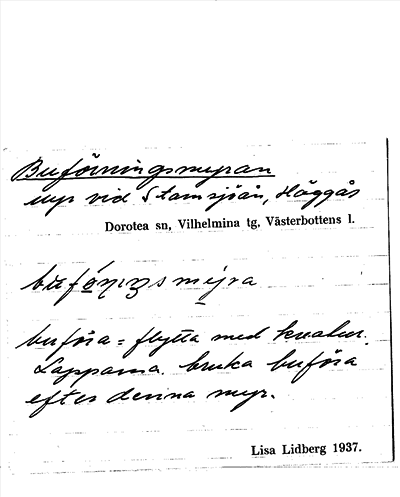 Buförningsmyran
myr vid Stamsjöån, Häggås
Dorotea sn, Vilhelmina tg, Västerbottens l.
buföra = flytta med kreatur.
Lapparna bruka buföra
efter denna myr.
Lisa Lidberg 1937.